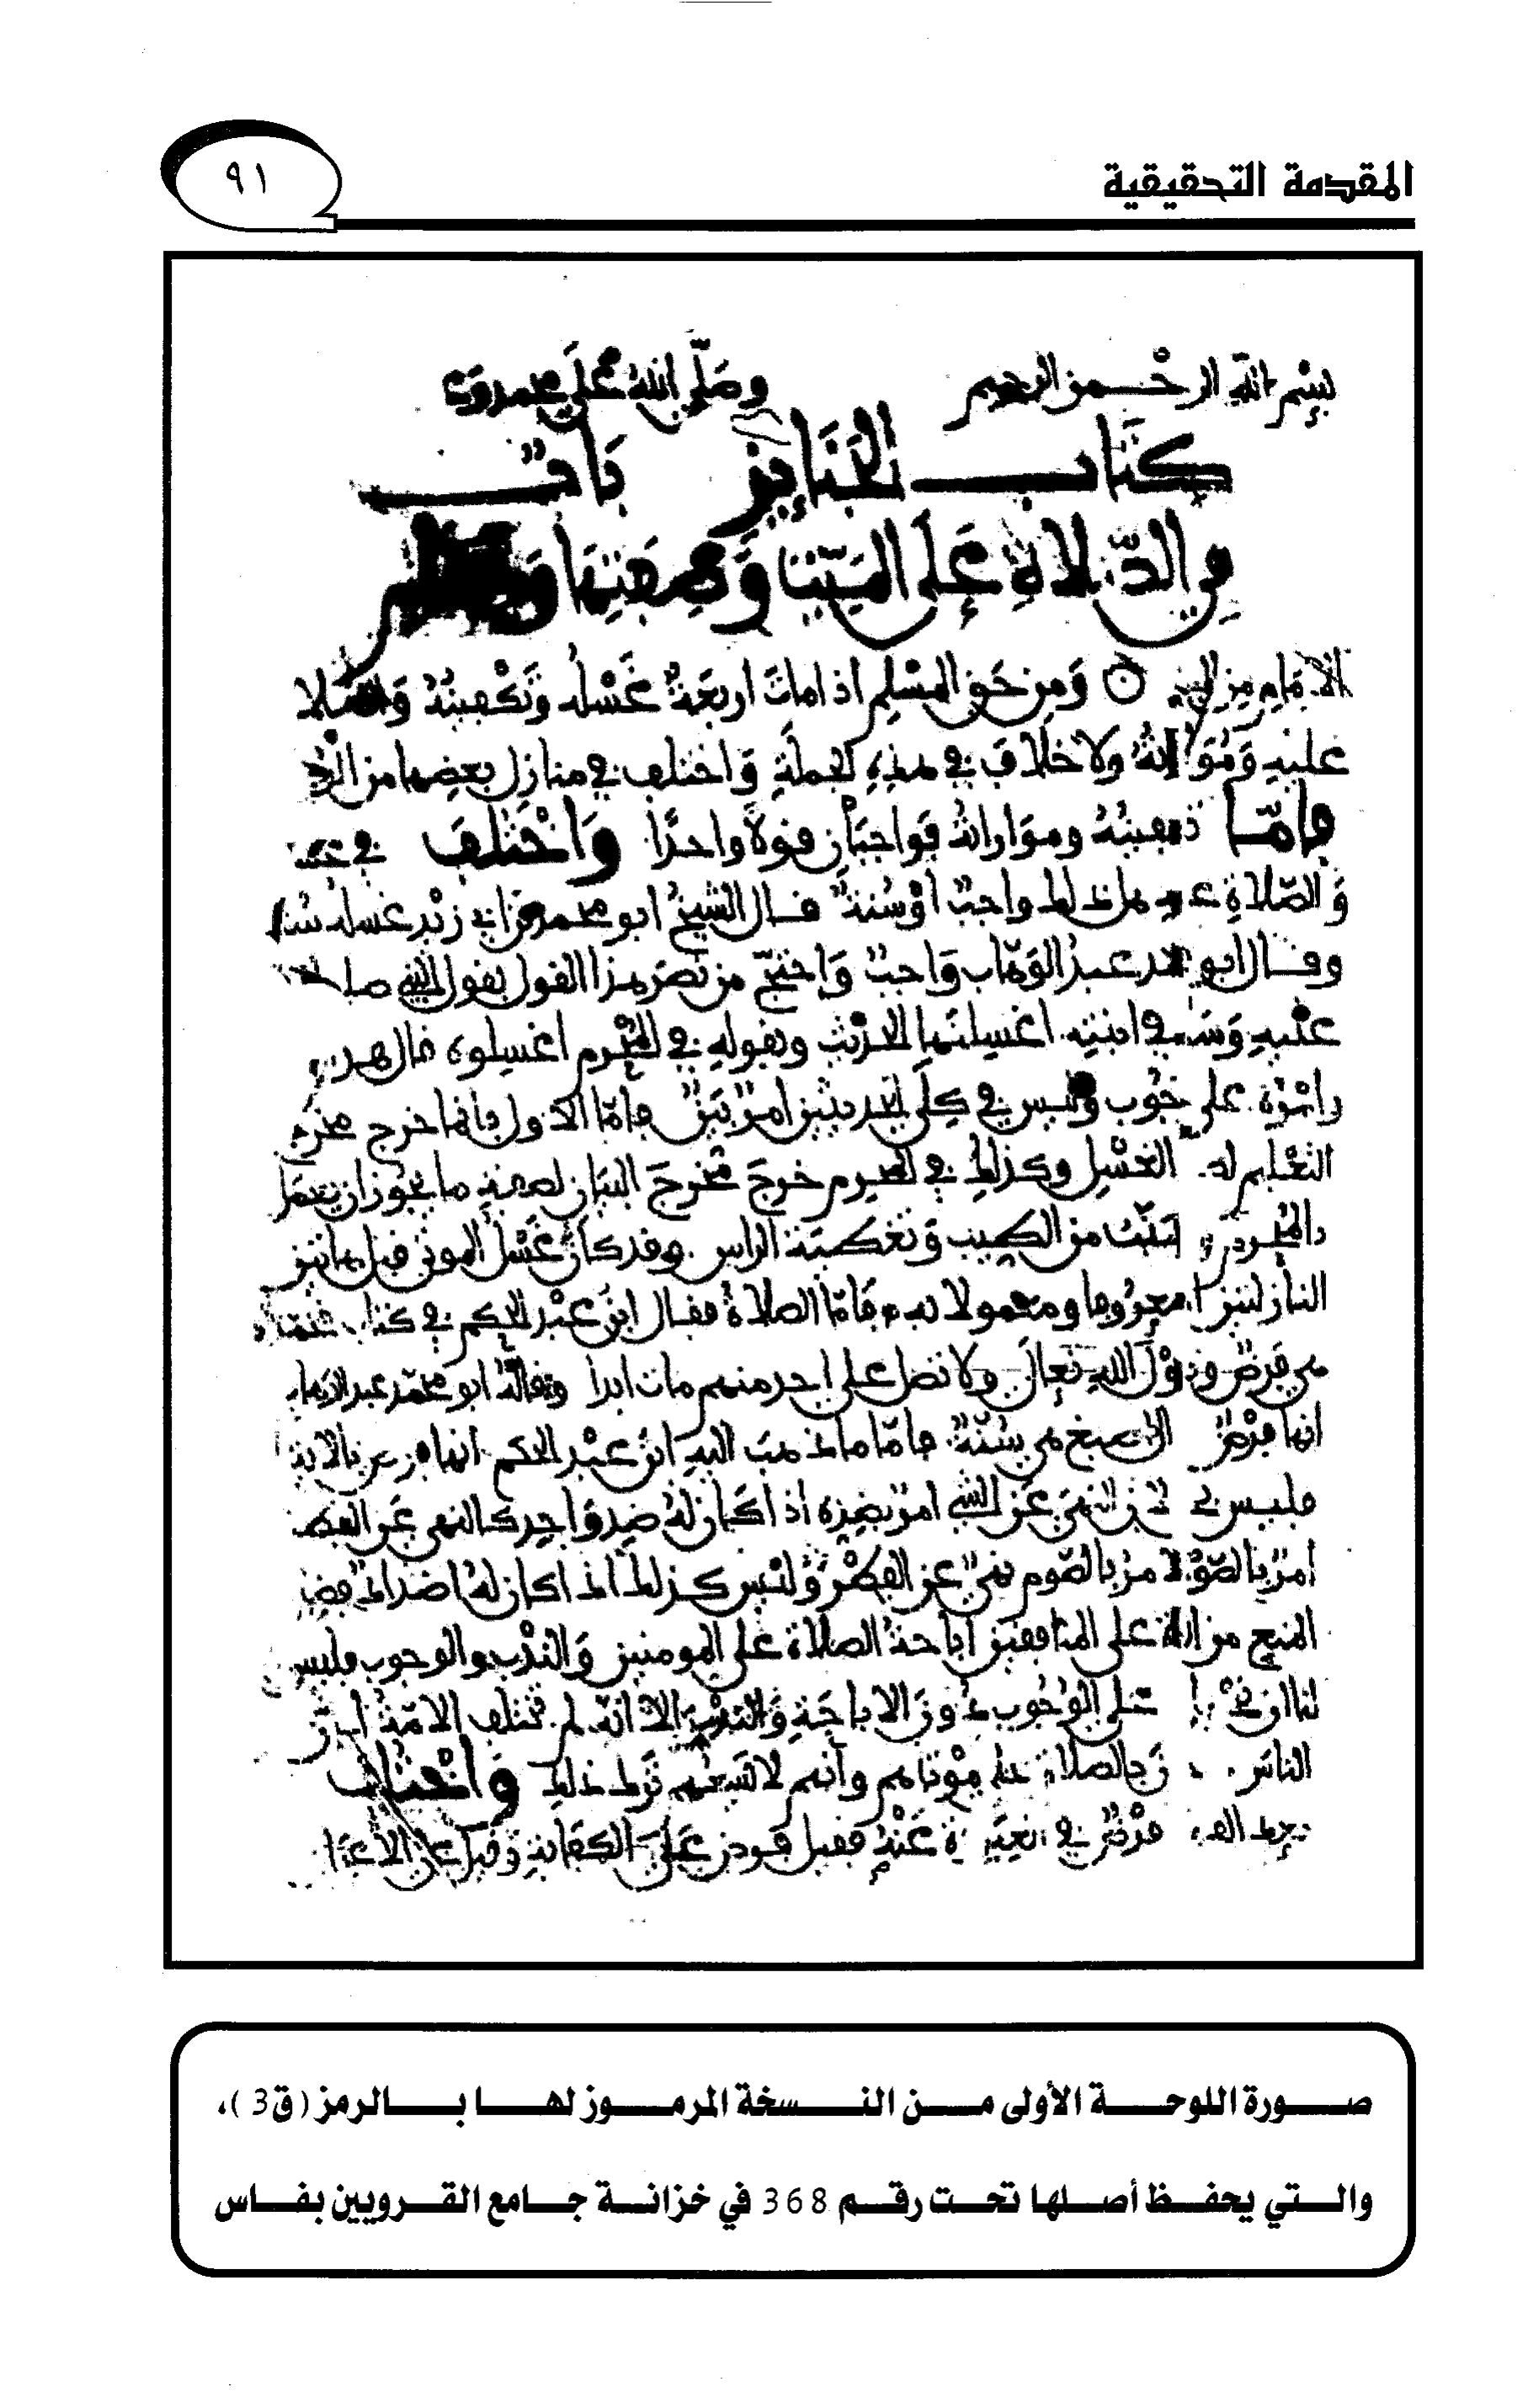 المقدمة التحقيقية
٩١
بسم الله الرحمن الرحيم وصلى الله على محمد
كتاب الجنايز باب
في الصلاة على الميت وصفتها
الامام من وَمِن حَق المسْلم اذا ماتَ اربعَة غَسْلُه وَتَكْفِينُهُ وَالصلاة
عليْهِ وَمُوَارَاتُهُ ولا خلافَ في هذه الجملَةِ وَاختلف في منازل بعضها من
فامّا تكفينُهُ ومواراتُهُ فواجبان قولاً واحدًا وَاخْتلفَ في غسله
وَالصّلاةِ عليه هل ذلك واجبٌ اوْ سُنةٌ فقال الشيخُ ابو محمد بن ابي زيْد غسله سنة
وقال ابو محمد عبد الوهاب وَاجبٌ وَاحتجّ من نصَرَ هذا القول بقول النبي صلى الله
عليهِ وَسَلم في ابنتِهِ اغسلنَها الحديْث وبقولهِ في المحْرم اغسلوه قال
وامْرُهُ على الوجُوب وليس في كِلَى الحديثين امرٌ بَيِّنٌ فامّا الاول فانما خرج مخرج
التعْليم لصفة الغسْل وكذلك في المحرم خرجَ مخْرَجَ البيَان لصفةِ ما يجُوز ان يعمَل
بالمحرم من الطيب وَتغطية الراس وقد كان غَسْل الموتى قبل هاتين
النازلتين امرا معرُوفا ومعمولا به فَامّا الصلاة فقال ابن عبْد الحكم في كتاب محمد
هي فرْض وَقوْل الله تعالى ولا تصل على احد منهم مات ابدا وقاله ابو محمّد عبد الوهاب
انها فرْض اصبغ هي سُنّة فامّا ما ذهبَ اليه ابن عبْد الحكم انها فرض بالاية
فليس بحسن لانّ النهيَ عن الشيء امرٌ بضِدِه اذا كان لهُ ضِدٌ وَاحِد كالنهي عَن الفطر
امرٌ بالصّوْم والامر بالصّوم نهيٌ عن الفِطْر وَليْس كذلك اذا كان لهُ اضداد فضد
المنع من الصلاة على المنافقين اباحةُ الصلاة على المومنين وَالندْب والوجوب فليس
لنا ان نحمله على الوُجُوب دُون الاباحَةِ وَالندب الا انه لم تختلف الامة
الناس بالصلاة على موْتاهم وانهم لا يسَعُهم ترْك ذلك وَاخْتلف
بعد القول فرْضٌ في تعيين عنْهُ فقيل فرض عَلى الكفاية وقيل على الاعيان
صورة اللوحة الأولى من النسخة المرموز لها بالرمز (ق3)،
والتي يحفظ أصلها تحت رقم 368 في خزانة جامع القرويين بفاس